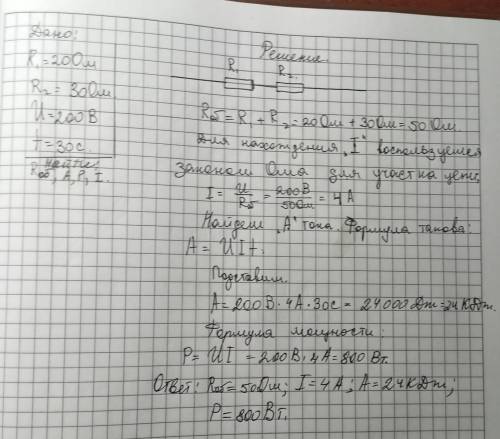 Дано:
R₁=20Ом
R₂=30Ом
U=200В
t=30с.
найти:
Rоб, A, P, I.
Решение.
R₁ R₂
Rоб = R₁ + R₂ = 20Ом + 30Ом = 50 Ом.
Для нахождения "I" воспользуемся
законом Ома для участка цепи,
I = U/Rоб = 200В/50Ом = 4 А
Найдем "А" тока. Формула такова:
A = UIt.
Подставим.
A = 200В · 4А · 30с = 24000 Дж = 24 КДж.
Формула мощности:
P = UI = 200В · 4А = 800 Вт.
Ответ: Rоб = 50Ом; I = 4А; A = 24КДж;
P = 800Вт.